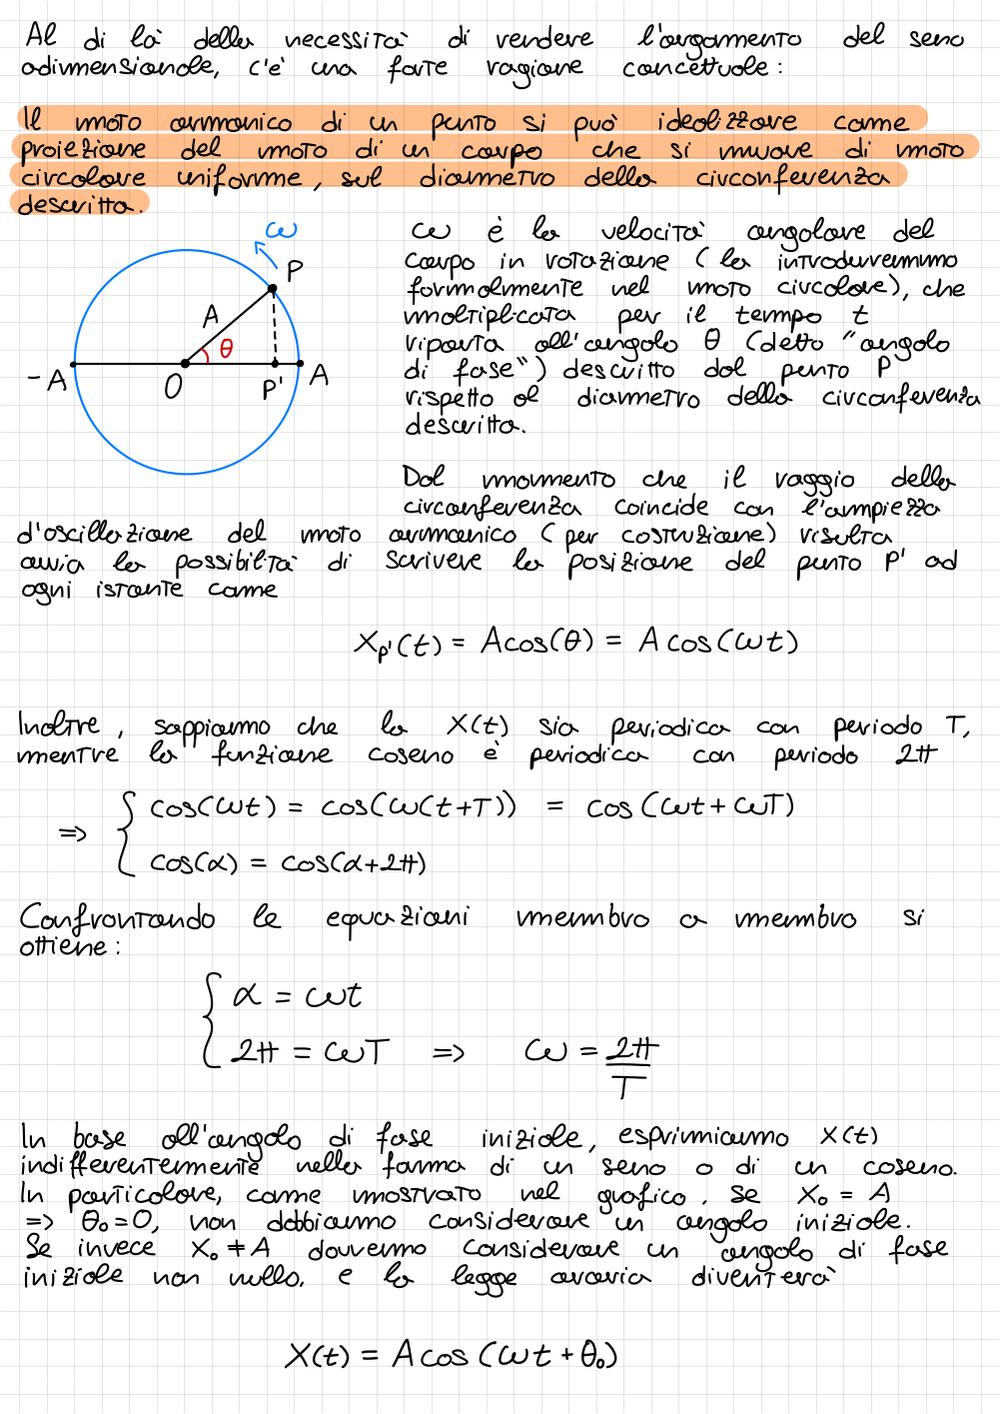 Al di là della necessità di rendere l'argomento del seno
adimensionale, c'è una forte ragione concettuale:
Il moto armonico di un punto si può idealizzare come
proiezione del moto di un corpo che si muove di moto
circolare uniforme, sul diametro della circonferenza
descritta.
ω
P
A
θ
-A
O
P'
A
ω è la velocità angolare del
corpo in rotazione (la introdurremmo
formalmente nel moto circolare), che
moltiplicata per il tempo t
riporta all'angolo θ (detto "angolo
di fase") descritto dal punto P
rispetto al diametro della circonferenza
descritta.
Dal momento che il raggio della
circonferenza coincide con l'ampiezza
d'oscillazione del moto armonico (per costruzione) risulta
ovvia la possibilità di scrivere la posizione del punto P' ad
ogni istante come
X_P'(t) = Acos(θ) = A cos(ωt)
Inoltre, sappiamo che la X(t) sia periodica con periodo T,
mentre la funzione coseno è periodica con periodo 2π
=> { cos(ωt) = cos(ω(t+T)) = cos(ωt+ωT)
cos(α) = cos(α+2π)
Confrontando le equazioni membro a membro si
ottiene:
{ α = ωt
2π = ωT => ω = 2π/T
In base all'angolo di fase iniziale, esprimiamo X(t)
indifferentemente nella forma di un seno o di un coseno.
In particolare, come mostrato nel grafico, se X₀ = A
=> θ₀=0, non dobbiamo considerare un angolo iniziale.
Se invece X₀ ≠ A dovremo considerare un angolo di fase
iniziale non nullo, e la legge oraria diventerà
X(t) = A cos (ωt + θ₀)